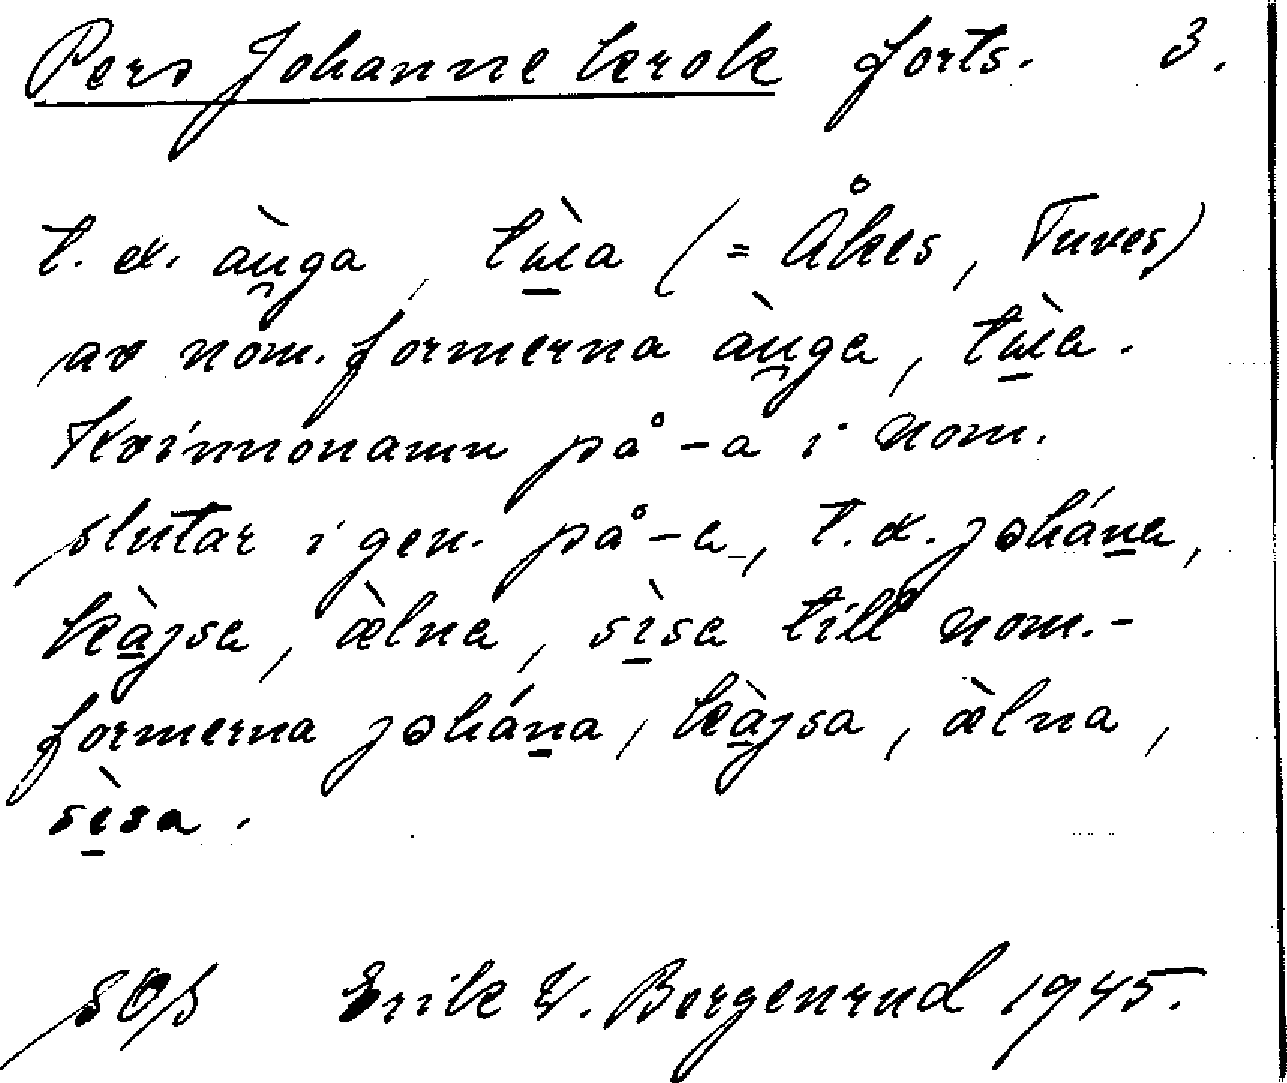 Pers Johanne krok forts. 3.
t. ex. àu̯ga, tùa (= Åkes, Tuves)
av nom. formerna àu̯ga, tùa.
Kvinnonamn på -a i nom.
slutar i gen. på -a, t. ex. johána,
kàjsa, æ̀lna, sìsa till nom.-
formerna johána, kàjsa, æ̀lna,
sìsa.
SOS Erik W. Bergenrud 1945.